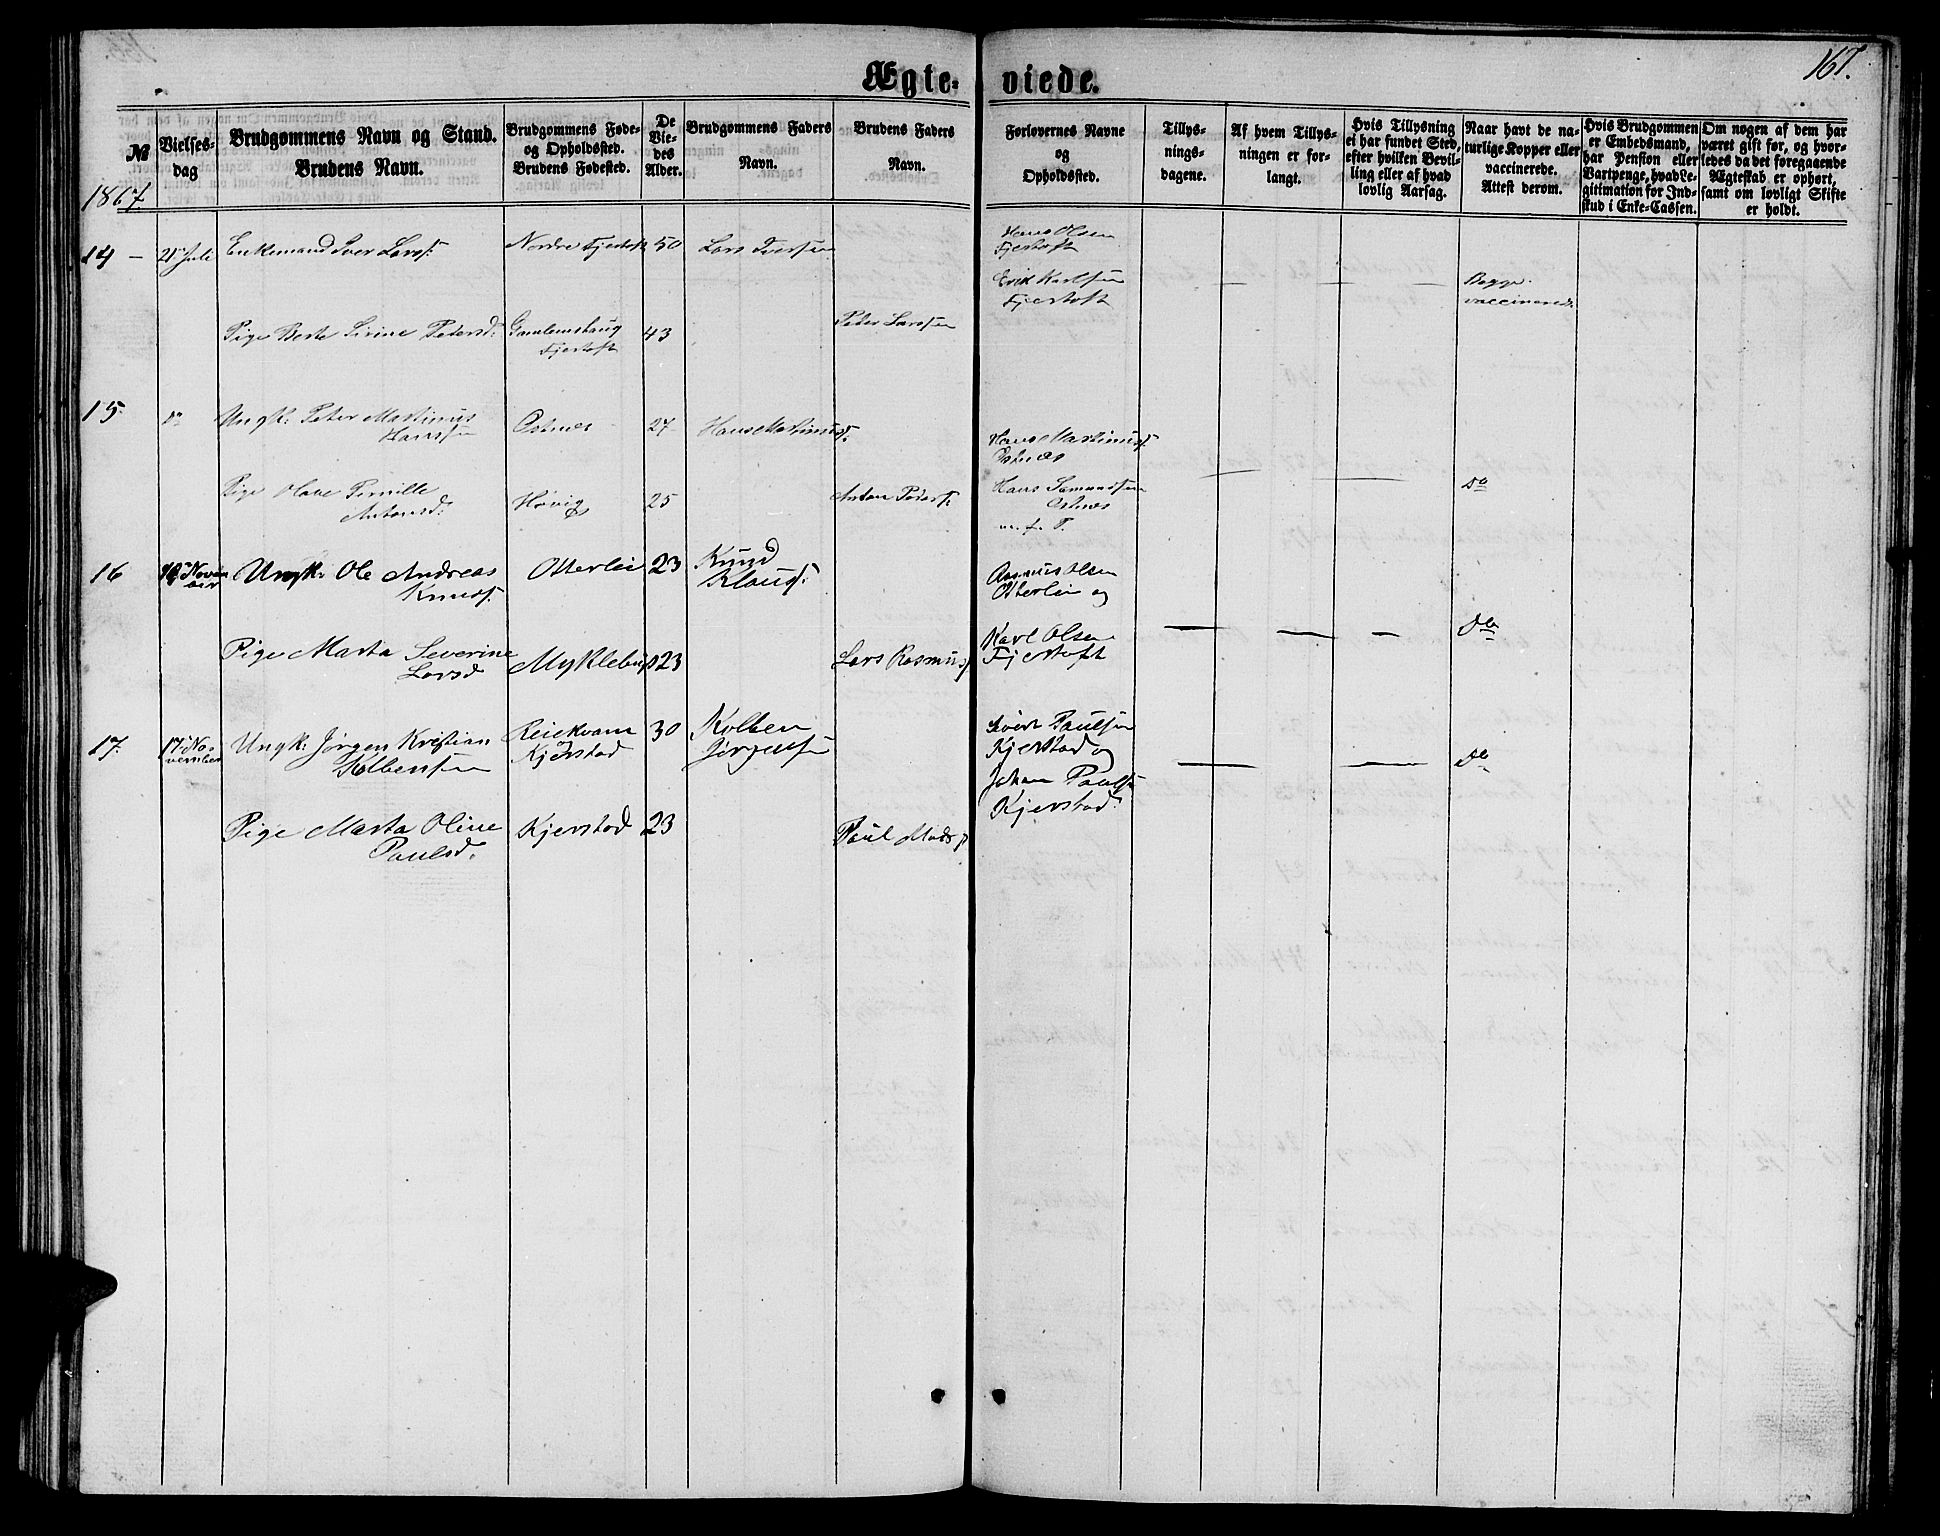 167.
Ægte- viede.
№
Vielses-
dag
Brudgommens Navn og Stand.
Brudens Navn.
Brudgommens Føde-
og Opholdssted.
Brudens Fødested.
De
Vie-
des
Alder.
Brudgommens Faders
Navn.
Brudens Faders
Navn.
Forlovernes Navne
og
Opholdssted.
Tillys-
nings-
dagene.
Af hvem Tillys-
ningen er for-
langt.
Hvis Tillysning
ei har fundet Sted,
efter hvilken Bevil-
ling eller af hvad
lovlig Aarsag.
Naar havt de na-
turlige Kopper eller
vaccinerede.
Attest derom.
Hvis Brudgommen
er Embedsmand,
har Pension eller
Vartpenge, hvad Le-
gitimation for Ind-
skud i Enke-Cassen.
Om nogen af dem har
været gift før, og hvor-
ledes da det foregaaende
Ægteskab er ophørt,
samt om lovligt Skifte
er holdt.
1867
14 — 21 Juli Enkemand Iver Larss. Nordre Fjertoft 50 Lars
Hans Olsen
Fjertoft
Erik Karlsen
Fjertoft
Begge
vaccinerede
Pige Berte Sirine Pedersd. Gamlemshaug
Fjertoft
43 Peter Larssen
15. do Ungk. Peter Martinus
Hanssen
Ostnæs 24 Hans Martinuss.
Hans Martinuss.
Ostnæs
Pige Olave Pernille
Antonsd.
Høvig 25 Anton Peders.
Hans Samundsen
Ostnæs
do
16 Novem
ber
Ungk. Ole Andreas
Knuds.
Otterlei 23 Knud
Klauss.
Rasmus Olsen
Otterlei og
Pige Marta Severine
Larsd
Myklebust 23 Lars Rasmus.
Karl Olsen
Fjertoft
do
17. 17 No-
vember
Ungk. Jørgen Kristian
Kolbensen
Reiekvam
og
Kjerstad
30 Kolben
Jørgensen
Sivert Paulsen
Kjerstad og
Johan Pauls.
Kjerstad.
do
Pige Marta Oline
Paulsd.
Kjerstad 23 Paul Mads.